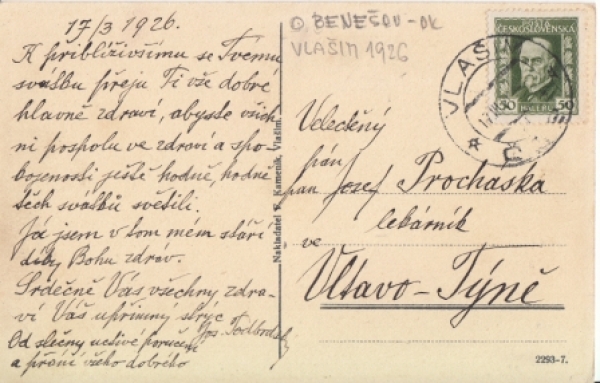 17/3 1926.
K přibližívšímu se Tvemu
svátku přeju Ti vše dobré
hlavně zdraví, abyste všich
ni pospolu ve zdraví a spo
kojenosti ještě hodně, hodně
těch svátků světili.
Já jsem v tom mém stáří
díky Bohu zdráv.
Srdečně Vás všechny zdra-
ví Váš upřímný strýc
Jos.
Od slečny uctivé poručení
a přání všeho dobrého
O BENEŠOV - OK
VLAŠIM 1926
Nakladatel F. Kameník, Vlašim.
POŠTA
ČESKOSLOVENSKÁ
50 HALÉŘŮ 50
VLAŠ
Velectěný
pán
pan Josef Prochaska
lekárník
ve
Vltavo-Týně
2293-7.